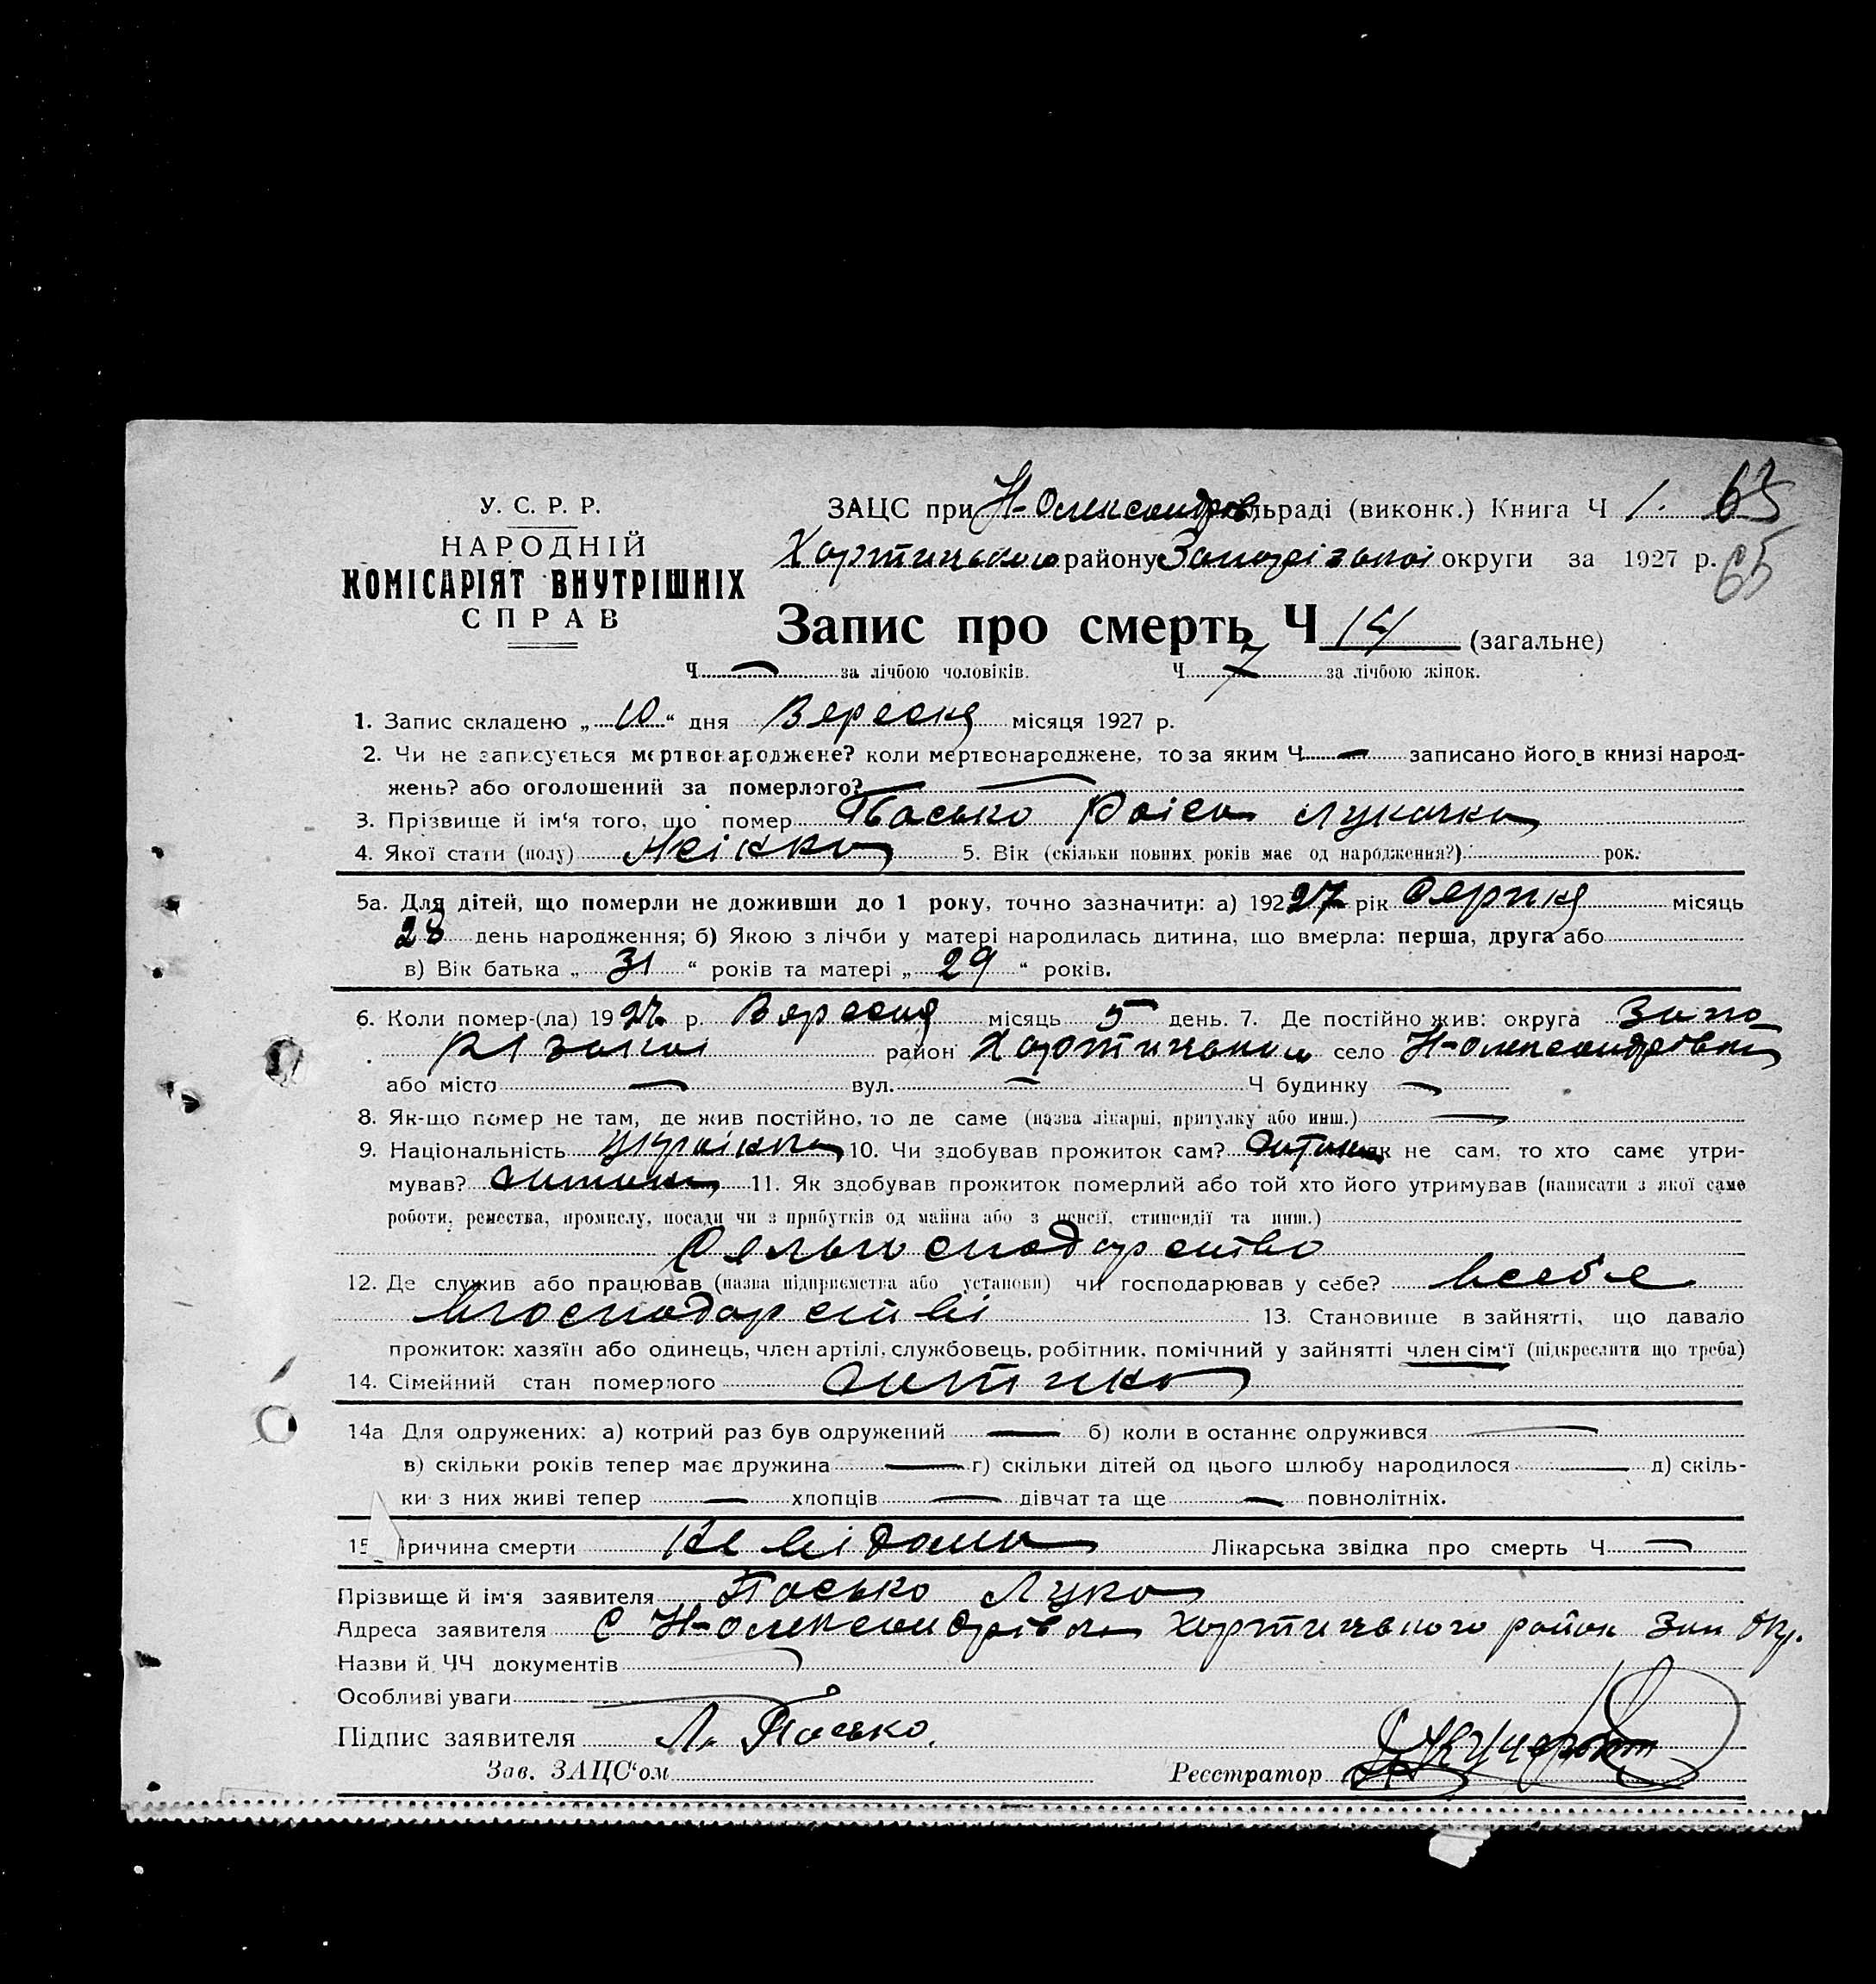 У. С. Р. Р.
НАРОДНІЙ
КОМІСАРІЯТ ВНУТРІШНІХ
СПРАВ
ЗАЦС при Н-Олександрів льраді (виконк.) Книга Ч 1. 63
Хортицького району Запорізької округи за 1927 р. 65
Запис про смерть Ч 14 (загальне)
Ч — за лічбою чоловіків. Ч 7 за лічбою жінок.
1. Запис складено „ 10 “ дня Вересня місяця 1927 р.
2. Чи не записується мертвонароджене? коли мертвонароджене, то за яким Ч — записано його в книзі народ-
жень? або оголошений за померлого? —
3. Прізвище й ім‘я того, що помер Пасько Раіса Лукачка
4. Якої стати (полу) Жінка 5. Вік (скільки повних років має од народження?) рок.
5а. Для дітей, що померли не доживши до 1 року, точно зазначити: а) 1927 рік Серпня місяць
28 день народження; б) Якою з лічби у матері народилась дитина, що вмерла: перша, друга або
в) Вік батька „ 31 “ років та матері „ 29 “ років.
6. Коли помер-(ла) 1927 р. Вересня місяць 5 день. 7. Де постійно жив: округа Запо
різької район Хортицького село Н-Олександрівка
або місто — вул. — Ч будинку —
8. Як-що помер не там, де жив постійно, то де саме (назва лікарні, притулку або инш.) —
9. Національність Українка 10. Чи здобував прожиток сам? як не сам, то хто саме утри-
мував? 11. Як здобував прожиток померлий або той хто його утримував (написати з якої саме
роботи, ремества, промислу, посади чи з прибутків од майна або з пенсії, стипендії та инш.)
Сельгосподарство
12. Де служив або працював (назва підприємства або установи) чи господарював у себе? всебе
вгосподарстві 13. Становище в зайнятті, що давало
прожиток: хазяїн або одинець, член артілі, службовець, робітник, помічний у зайнятті член сім‘ї (підкреслити що треба)
14. Сімейний стан померлого
14а Для одружених: а) котрий раз був одружений — б) коли в останнє одружився —
в) скільки років тепер має дружина — г) скільки дітей од цього шлюбу народилося — д) скіль-
ки з них живі тепер — хлопців — дівчат та ще — повнолітніх.
15 Причина смерти Невідома Лікарська звідка про смерть Ч —
Прізвище й ім‘я заявителя Пасько Лука
Адреса заявителя С Н-Олександрівка Хортицького район Зап Окр.
Назви й ЧЧ документів
Особливі уваги
Підпис заявителя Л. Пасько.
Зав. ЗАЦС‘ом Реєстратор